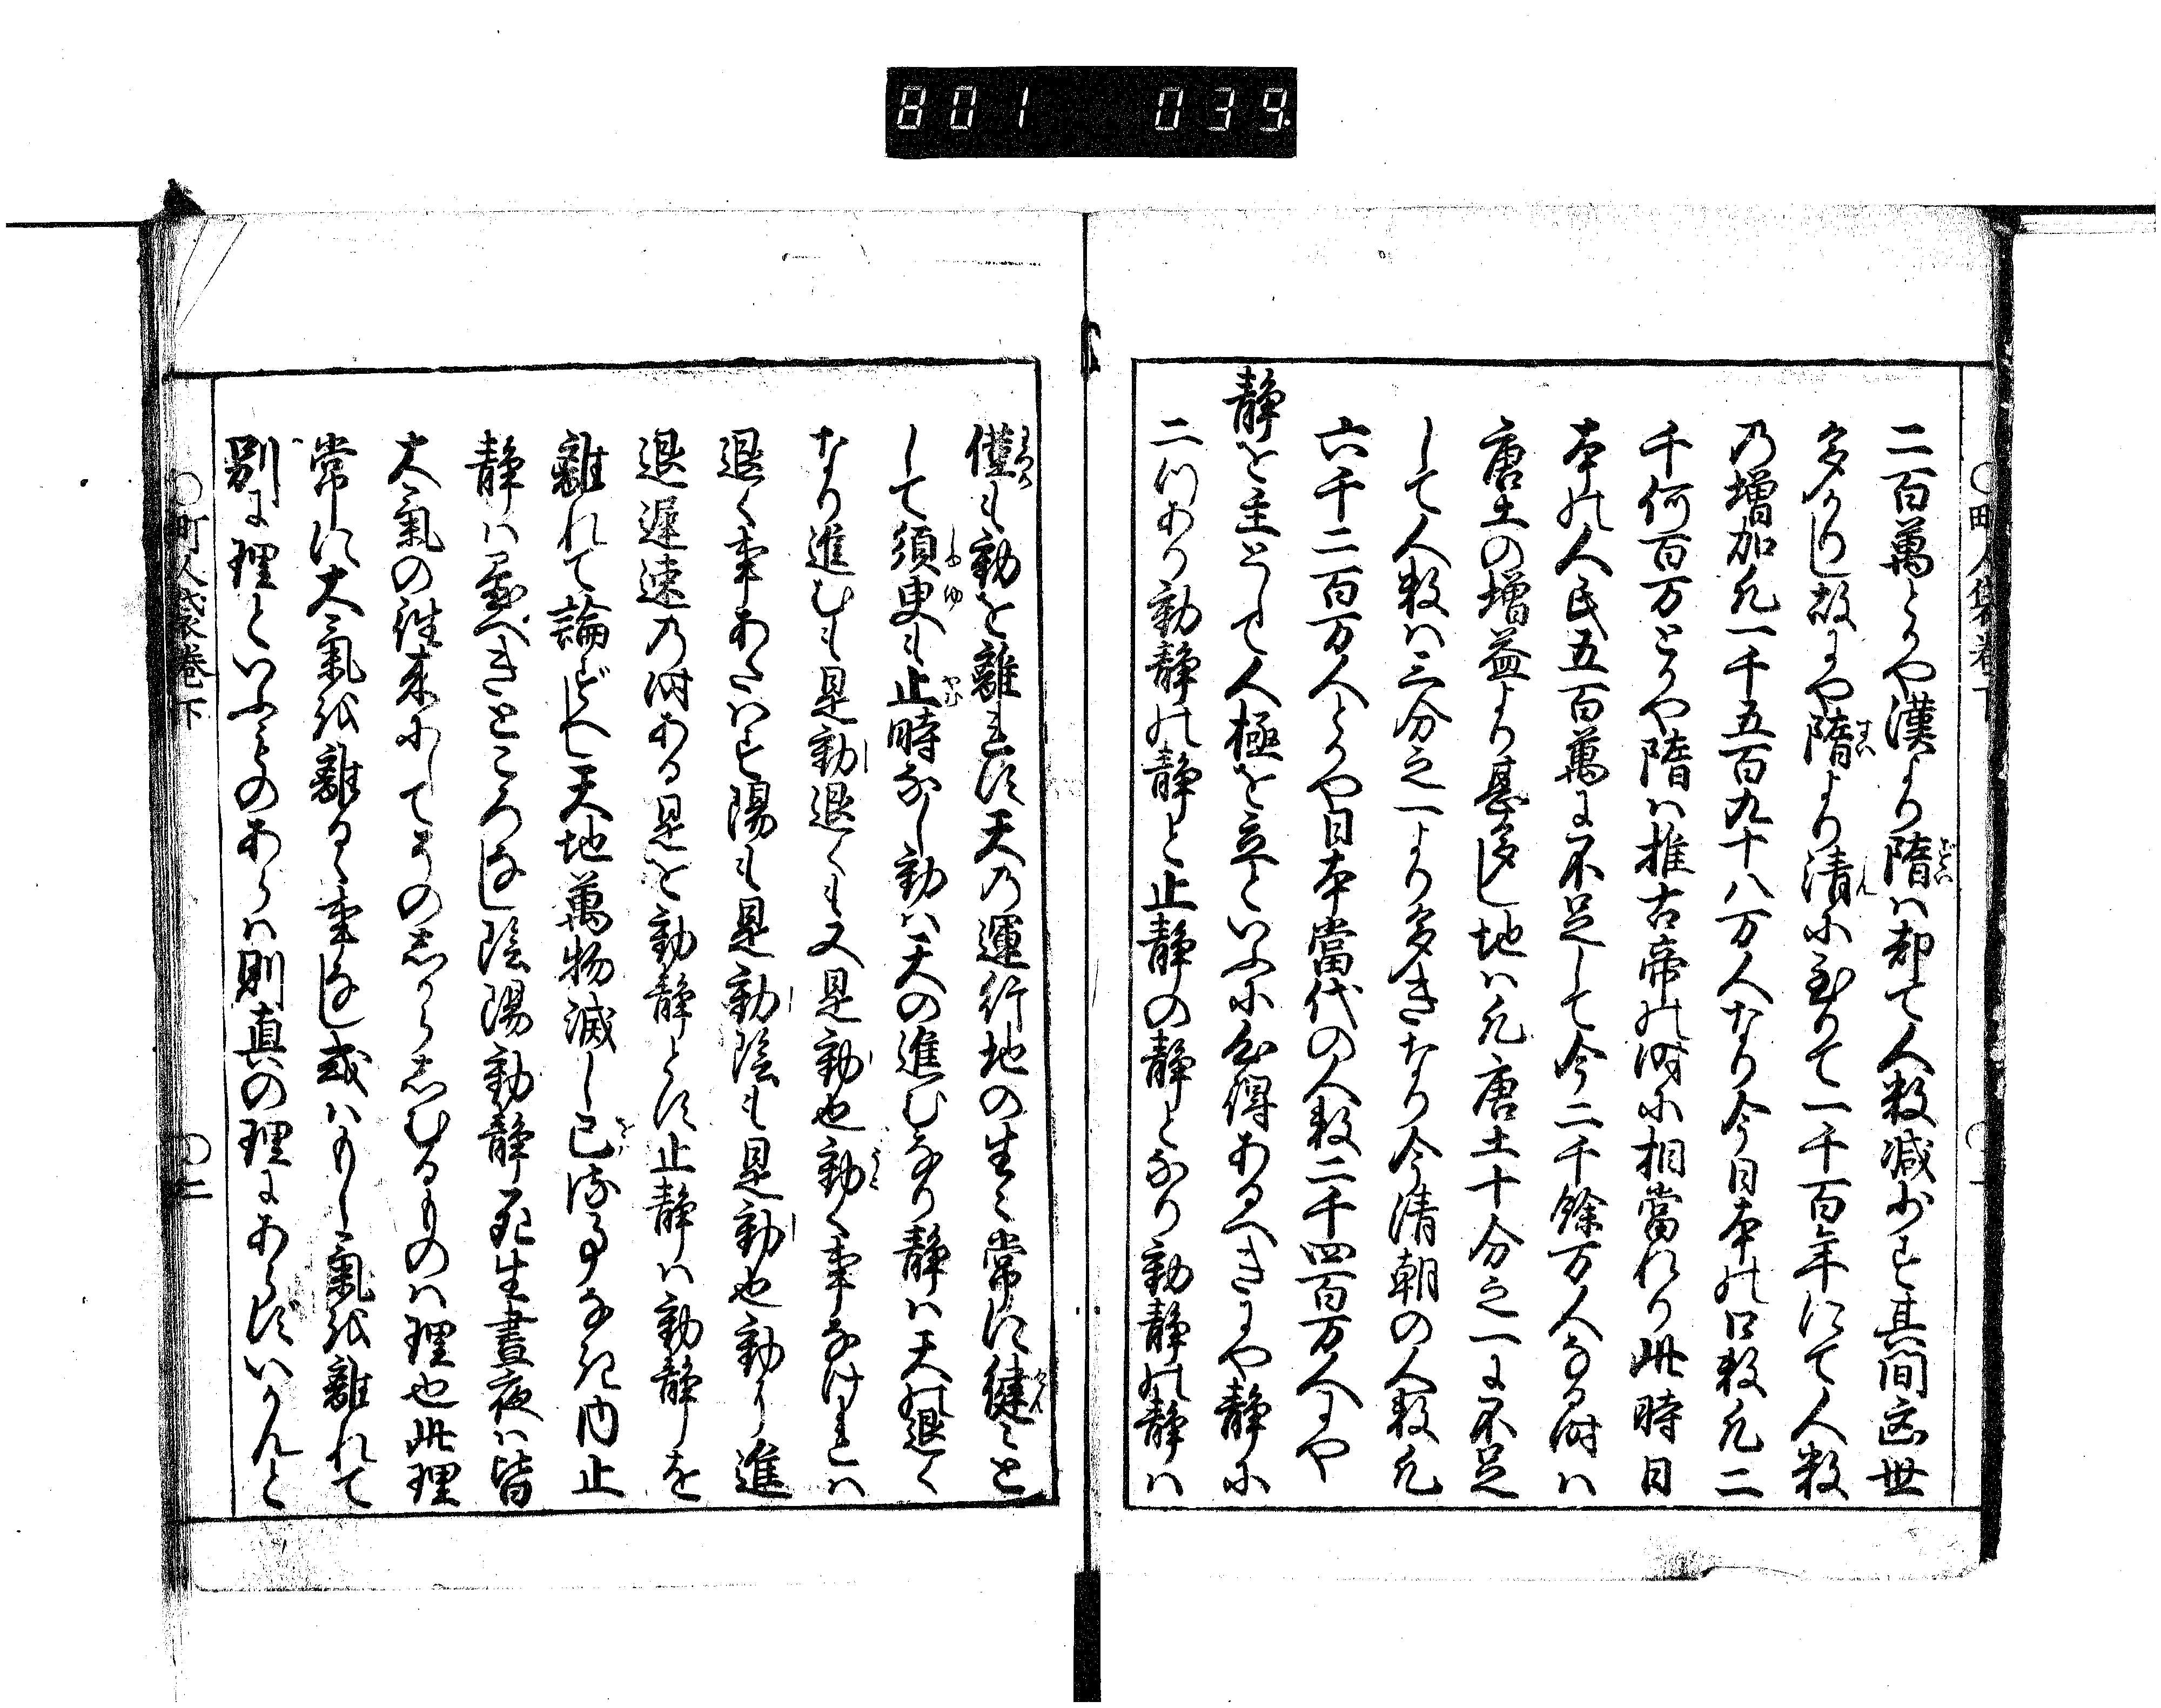 801 039.
二百萬とかや漢より隋は却て人数減少す其間乱世
多かりし故にや隋より清に至りて一千百年にて人数
の増加凡一千五百九十八万人なり今日本の口数凡二
千何百万とかや隋は推古帝の時に相當れり此時日
本の人民五百萬に不足して今二千餘万人なる時は
唐土の増益より甚多し地は凡唐土十分之一に不足
して人数は三分之一より多きなり今清朝の人数凡
六千二百万人とかや日本當代の人数二千四百万人にや
静を主として人極を立といふに心得あるべきにや静に
二つあり動静の静と止静の静となり動静の静は
○町人袋巻下
僅も動を離れず天の運行地の生々常に健々と
して須臾も止時なし動は天の進むなり静は天の退く
なり進むも是動退くも又是動也動く事なければ
退く事あたはず陽も是動陰も是動也動より進
退遅速の時ある是を動静とす止静は動静を
離れて論ずべし天地萬物滅し已後事なき内止
静は畳べきところなし陰陽動静死生晝夜は皆
大氣の往来にしてそのしからしむるものは理也此理
常に大氣を離るゝ事なし或はもし氣を離れて
別に理といふものあらば則真の理にあらずいかんと
○町人袋巻下
○二